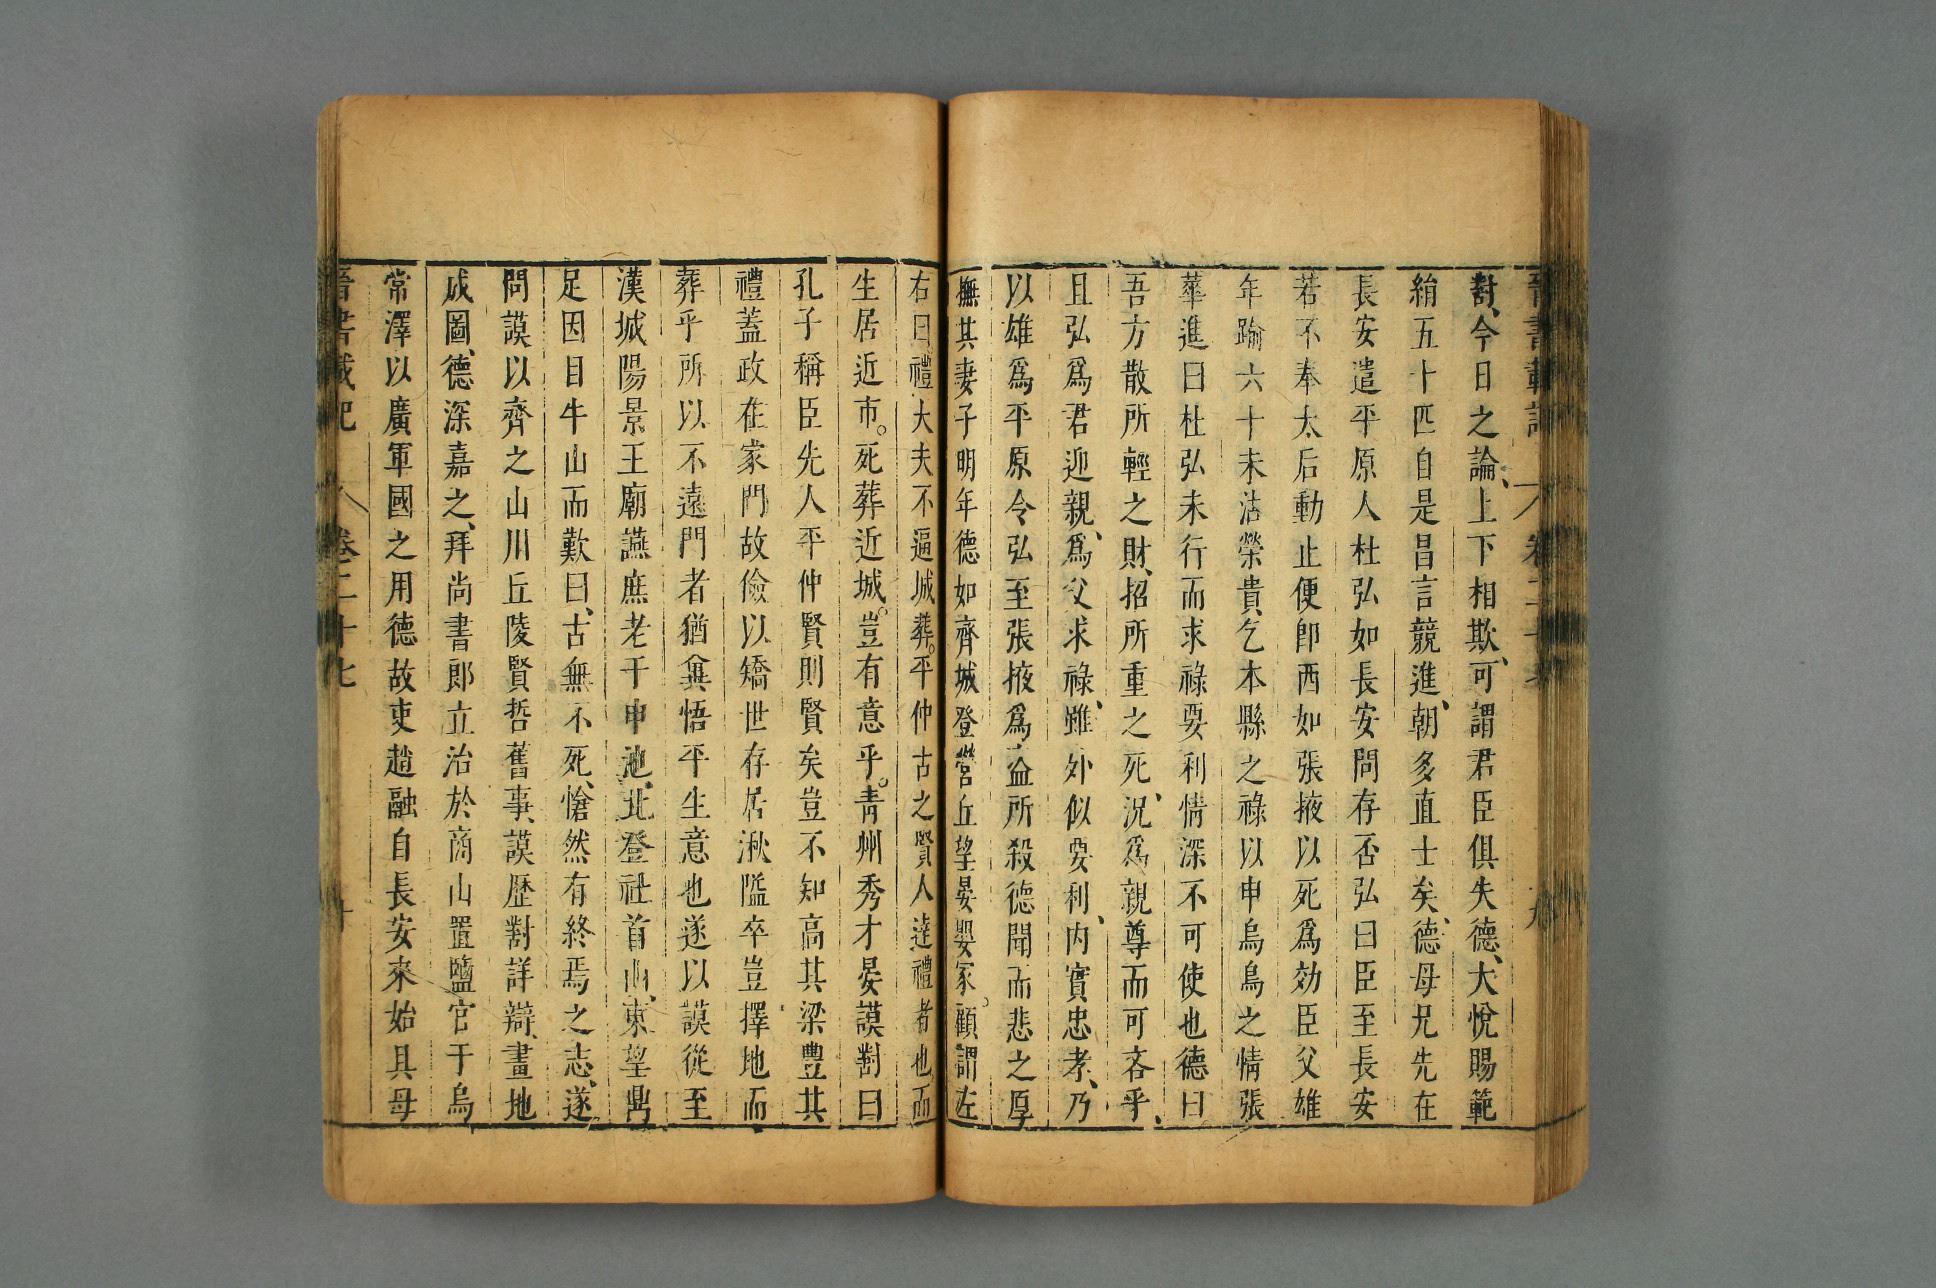 晉書載記 卷二十七 九
對、今日之論、上下相欺、可謂君臣俱失德、大悅賜範
絹五十匹自是昌言競進、朝多直士矣、德母兄先在
長安遣平原人杜弘如長安問存否弘曰臣至長安
若不奉太后動止便卽西如張掖以死爲効臣父雄
年踰六十未沾榮貴乞本縣之祿以申烏鳥之情張
華進曰杜弘未行而求祿要利情深不可使也德曰
吾方散所輕之財、招所重之死、況爲親尊而可吝乎、
且弘爲君迎親、爲父求祿、雖外似要利、內實忠孝、乃
以雄爲平原令弘至張掖爲盜所殺德聞而悲之厚
撫其妻子明年德如齊城登營丘望晏嬰家。顧謂左
右曰。禮大夫不逼城葬。平仲古之賢人達禮者也。而
生居近市。死葬近城。豈有意乎。靑州秀才晏謨對曰
孔子稱臣先人平仲賢則賢矣豈不知高其梁豐其
禮蓋政在家門故儉以矯世存居湫隘卒豈擇地而
葬乎所以不遠門者猶兾悟平生意也遂以謨從至
漢城陽景王廟讌庶老于申池、北登社首山、東望鼎
足因目牛山而歎曰、古無不死、愴然有終焉之志、遂
問謨以齊之山川丘陵賢哲舊事、謨歷對詳辯、畫地
成圖、德深嘉之、拜尚書郎立治於商山置鹽官于烏
常澤以廣軍國之用德故吏趙融自長安來始具母
晉書載記 卷二十七 十